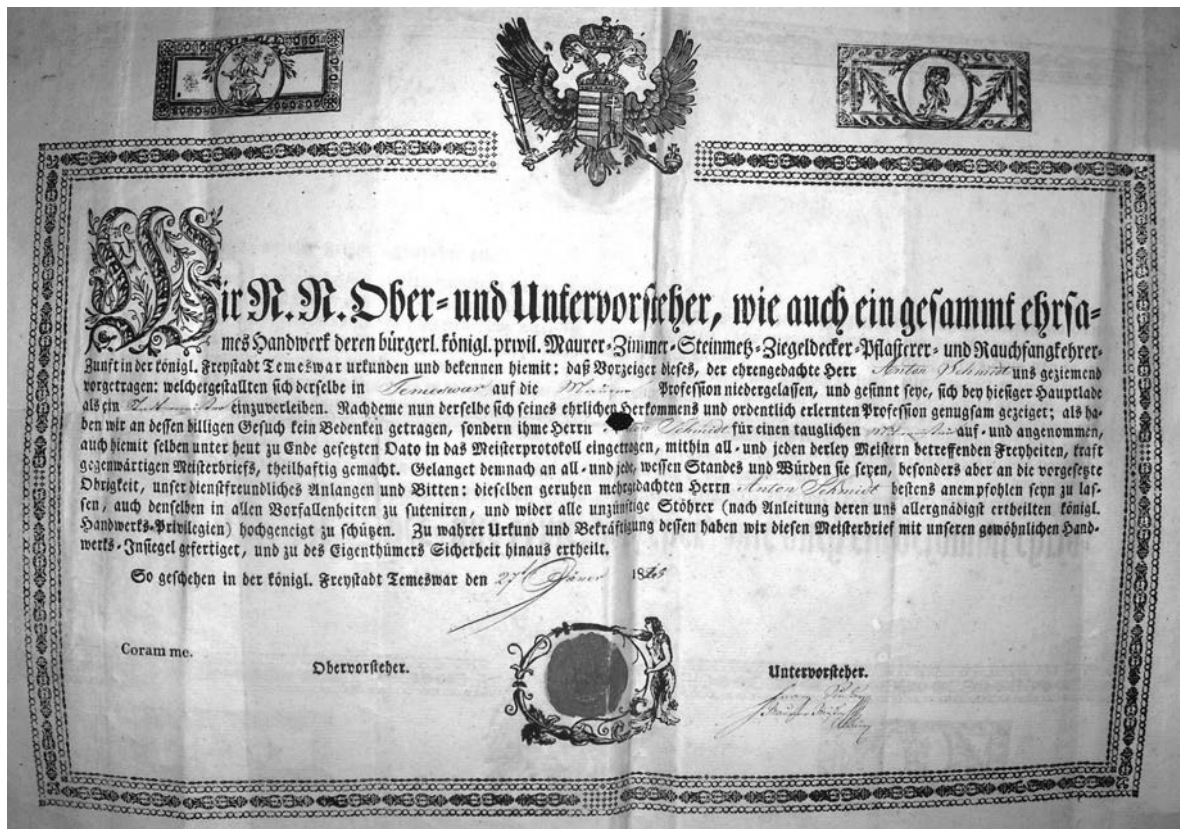 Wir N. N. Ober- und Untervorsteher, wie auch ein gesammt ehrsa-
mes Handwerk deren bürgerl. königl. privil. Maurer-Zimmer-Steinmetz-Ziegeldecker-Pflasterer- und Rauchfangkehrer-
Zunft in der königl. Freystadt Temeswar urkunden und bekennen hiemit: daß Vorzeiger dieses, der ehrengedachte Herr Anton Schmidt uns geziemend
vorgetragen: welchergestallten sich derselbe in Temeswar auf die Maurer Profession niedergelassen, und gesinnt seye, sich bey hiesiger Hauptlade
als ein einzuverleiben. Nachdeme nun derselbe sich seines ehrlichen Herkommens und ordentlich erlernten Profession genugsam gezeiget; als ha-
ben wir an dessen billigen Gesuch kein Bedenken getragen, sondern ihme Herrn Schmidt für einen tauglichen auf- und angenommen,
auch hiemit selben unter heut zu Ende gesetzten Dato in das Meisterprotokoll eingetragen, mithin all- und jeden derley Meistern betreffenden Freyheiten, kraft
gegenwärtigen Meisterbriefs, theilhaftig gemacht. Gelanget demnach an all- und jede, wessen Standes und Würden sie seyen, besonders aber an die vorgesetzte
Obrigkeit, unser dienstfreundliches Anlangen und Bitten: dieselben geruhen mehrgedachten Herrn Anton Schmidt bestens anempfohlen seyn zu las-
sen, auch denselben in allen Vorfallenheiten zu suteniren, und wider alle unzünftige Stöhrer (nach Anleitung deren uns allergnädigst ertheilten königl.
Handwerks-Privilegien) hochgeneigt zu schützen. Zu wahrer Urkund und Bekräftigung dessen haben wir diesen Meisterbrief mit unseren gewöhnlichen Hand-
werks-Insiegel gefertiget, und zu des Eigenthümers Sicherheit hinaus ertheilt.
So geschehen in der königl. Freystadt Temeswar den 27t Jäner 18
Coram me.
Obervorsteher.
Untervorsteher.